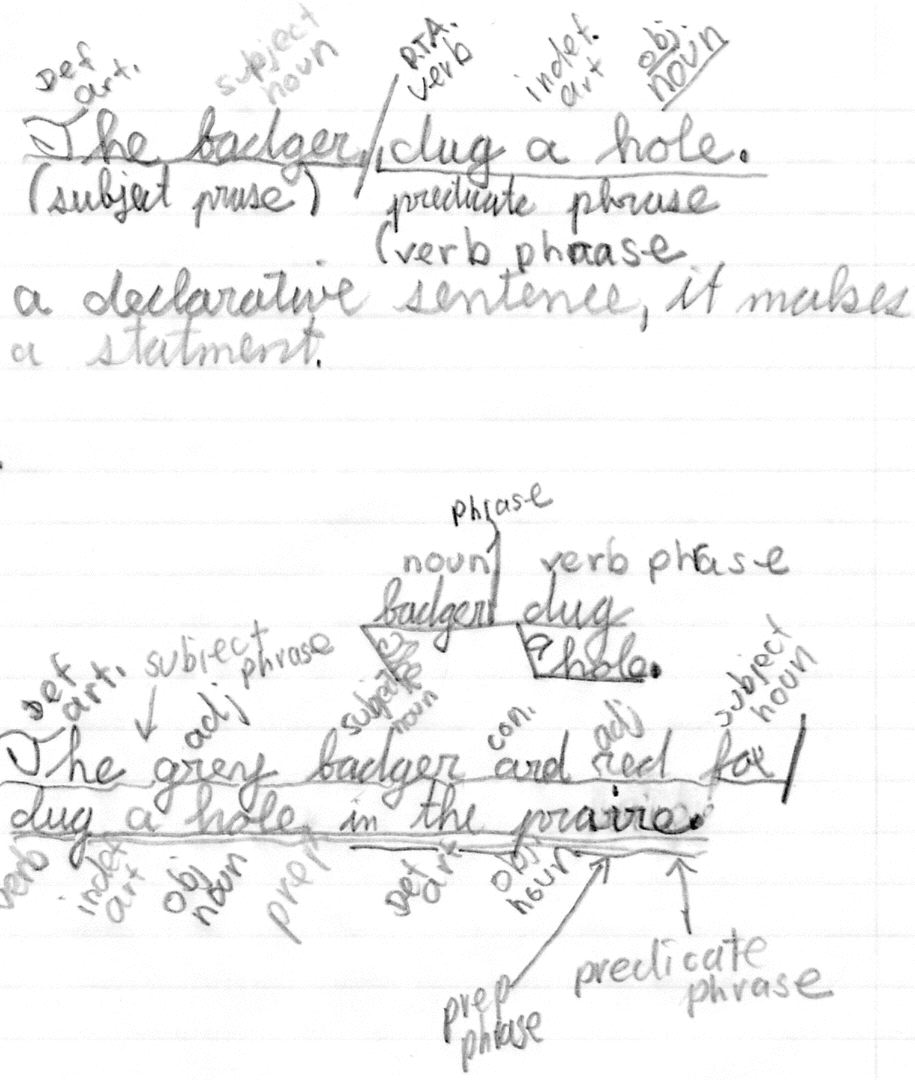 Def art. subject noun P.T.A. verb indef. art obj. noun
The badger dug a hole.
(subject prase) predicate phrase
(verb phrase
a declarative sentence, it makes
a statment.
phrase
noun verb phrase
badger dug
a hole.
Def art. subject phrase adj subject noun con. adj subject noun
The grey badger and red fox
dug a hole in the prairie.
verb indef art obj noun prep Def art obj noun
prep phrase predicate phrase